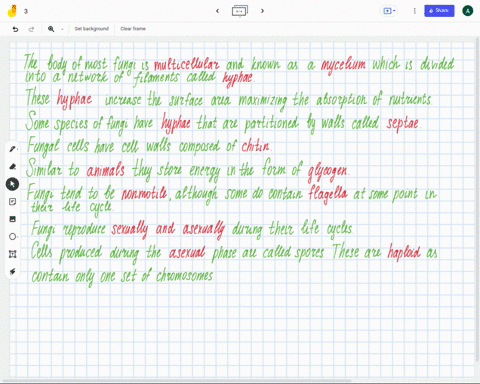 3
Set background
Clear frame
Share
A
The body of most fungi is multicellular and known as a mycelium which is divided
into a network of filaments called hyphae
These hyphae increase the surface area maximizing the absorption of nutrients
Some species of fungi have hyphae that are partitioned by walls called septae
Fungal cells have cell walls composed of chitin
Similar to animals they store energy in the form of glycogen
Fungi tend to be nonmotile, although some do contain flagella at some point in
their life cycle
Fungi reproduce sexually and asexually during their life cycles
Cells produced during the asexual phase are called spores These are haploid as
contain only one set of chromosomes